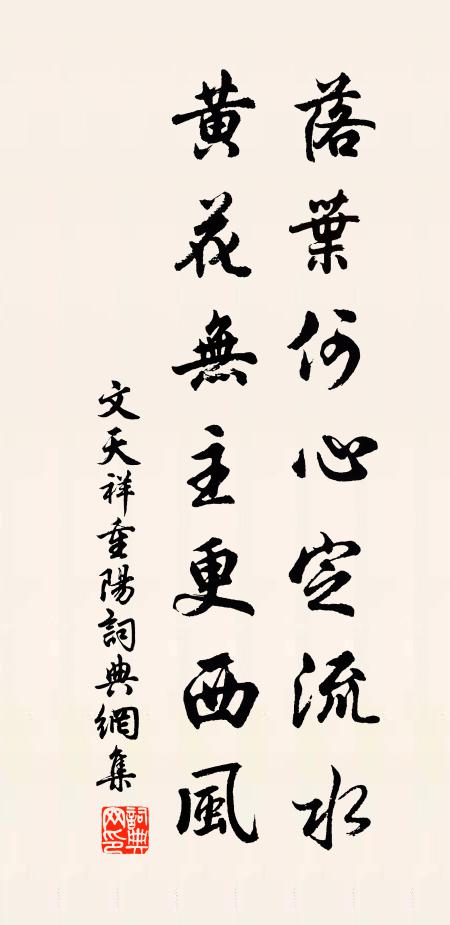 落葉何心定流水
黃花無主更西風
文天祥重陽詞典網集
詞典網印